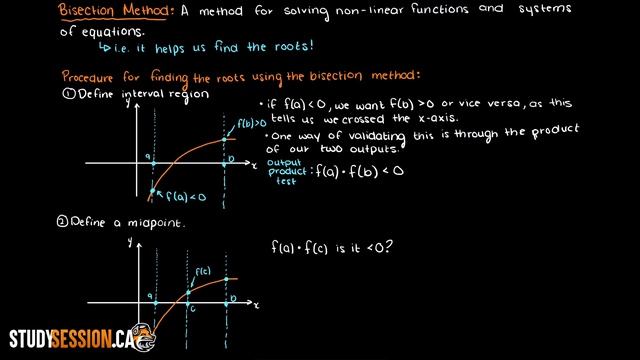 Bisection Method: A method for solving non-linear functions and systems
of equations.
↳ i.e. it helps us find the roots!
Procedure for finding the roots using the bisection method:
① Define interval region
y
f(b)>0
a
b
x
f(a)<0
• if f(a)<0, we want f(b)>0 or vice versa, as this
tells us we crossed the x-axis.
• One way of validating this is through the product
of our two outputs.
output
product : f(a)·f(b)<0
test
② Define a midpoint.
y
f(c)
a
c
b
x
f(a)·f(c) is it <0?
STUDYSESSION.CA